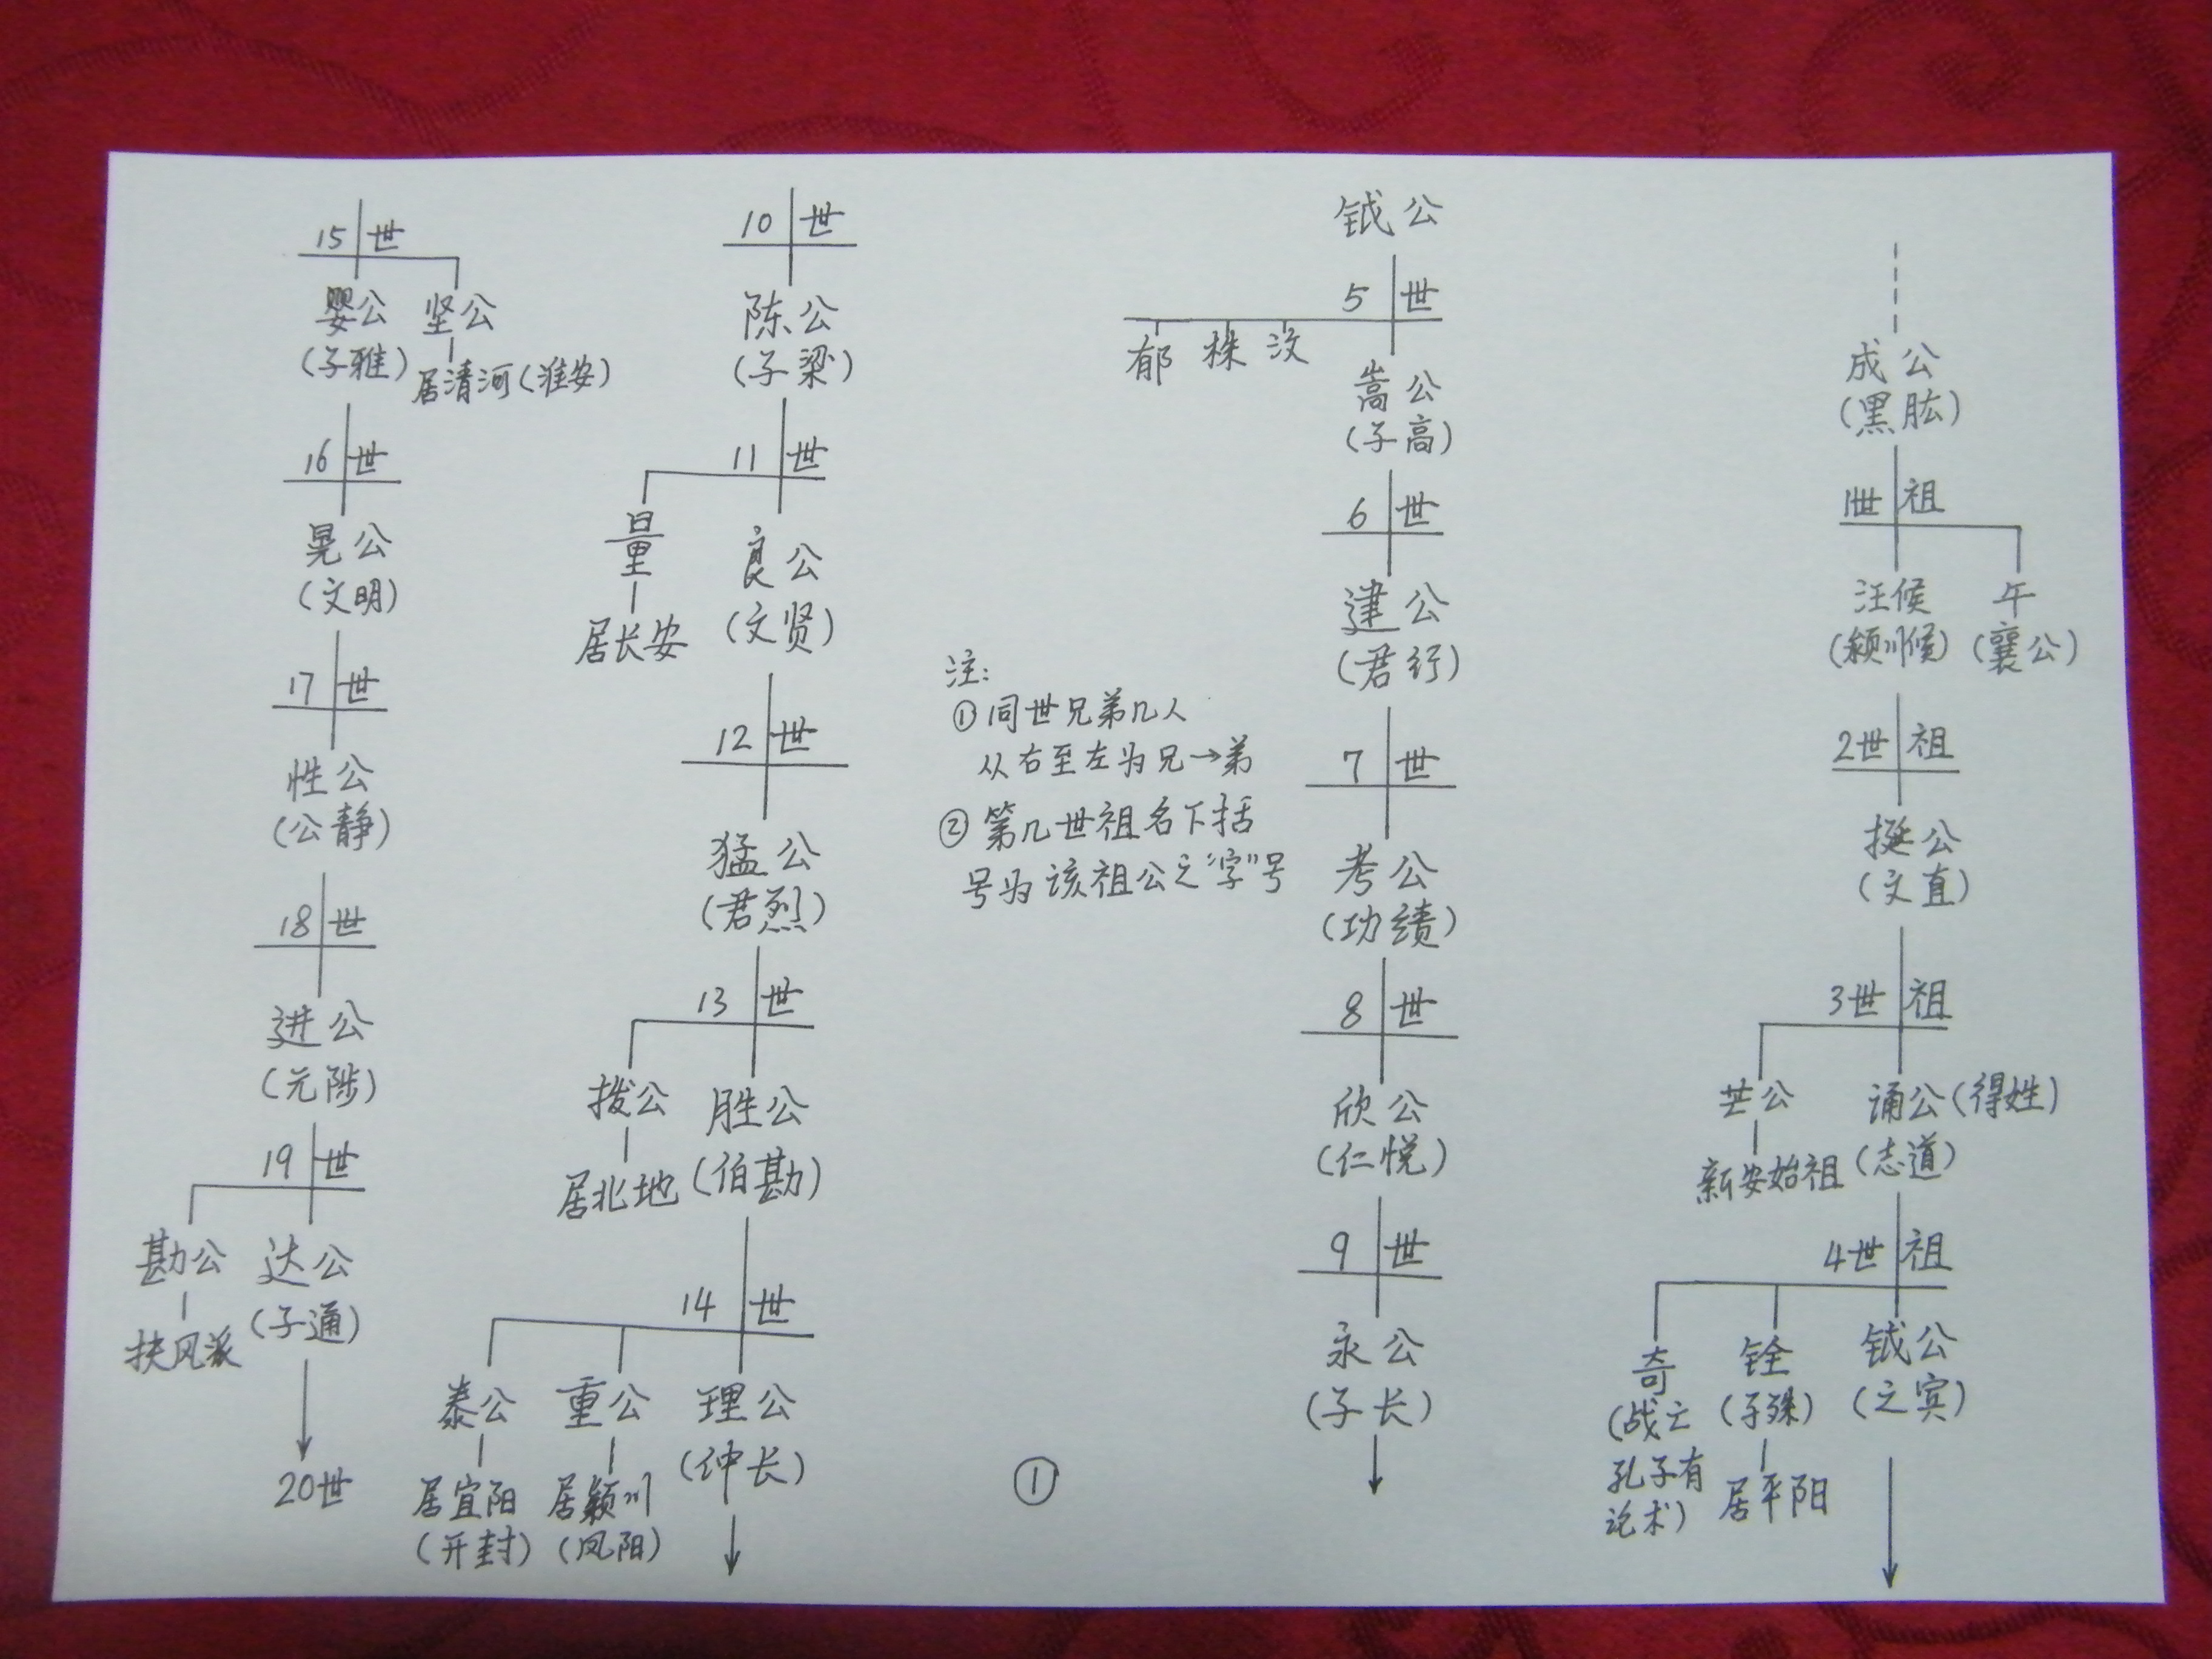 成公
(黑肱)
1世祖
汪侯 午
(颍川侯) (襄公)
2世祖
挺公
(文直)
3世祖
芒公 诵公(得姓)
新安始祖 (志道)
4世祖
奇 铨 钺公
(战亡 (子殊) (之宾)
孔子有 居平阳
论术)
钺公
5世
郁 株 汶
嵩公
(子高)
6世
建公
(君行)
7世
考公
(功绩)
8世
欣公
(仁悦)
9世
永公
(子长)
注:
①同世兄弟几人
从右至左为兄→弟
②第几世祖名下括
号为该祖公之“字”号
①
10世
陈公
(子梁)
11世
量 良公
居长安 (文贤)
12世
猛公
(君烈)
13世
拨公 胜公
居北地 (伯勘)
14世
泰公 重公 理公
居宜阳 居颍川 (仲长)
(开封) (凤阳)
15世
婴公 坚公
(子雅) 居清河(淮安)
16世
晃公
(文明)
17世
性公
(公静)
18世
进公
(元陟)
19世
勘公 达公
扶风派 (子通)
20世